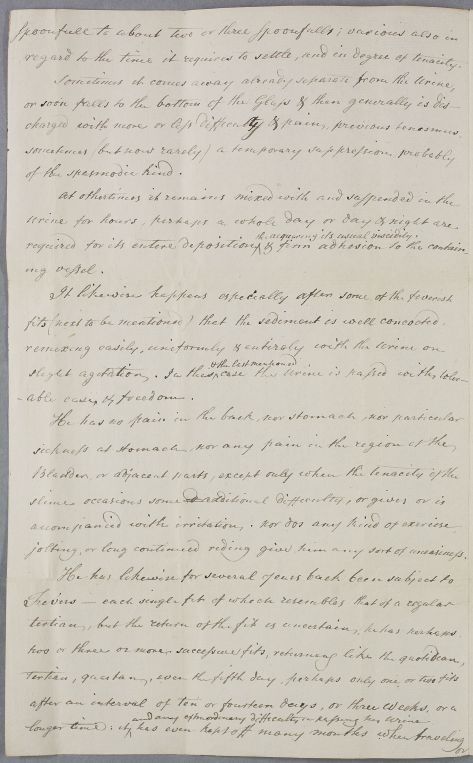 Spoonfull to about two or three Spoonfulls; various also in
regard to the time it requires to settle, and in degree of tenacity.
Sometimes it comes away already separate from the Urine,
or soon falls to the bottom of the Glass & then generally is dis-
charged with more or less difficulty & pain, previous tenesmus
sometimes (but now rarely) a temporary suppression probably
of the spasmodic kind.
At other times it remains mixed with and suspended in the
Urine for hours, perhaps a whole day or day & night are
the acquiring its usual viscidity.
required for its entire deposition, & firm adhesion to the contain-
ing vessel.
It likewise happens especially after some of the feverish
fits (next to be mentioned) that the sediment is well concocted
remixing easily, uniformly & entirely with the Urine on
& the last mentioned
slight agitation. In this case the Urine is passed with toler-
-able ease, & freedom.
He has no pain in the back, nor stomach, nor particular
sickness at stomach, nor any pain in the region of the
Bladder, or adjacent parts, except only when the tenacity of the
slime occasions some additional difficulty, or gives or is
accompanied with irritation; nor does any kind of exercise
jolting, or long continued riding give him any sort of uneasiness.
He has likewise for several years back been subject to
Fevers — each single fit of which resembles that of a regular
tertian, but the return of the fit is uncertain, he has perhaps
two or three or more, successive fits, returning like the quotidian,
tertian, quartan, even the fifth day, perhaps only one or two fits
after an interval of ten or fourteen days, or three weeks, or a
and any extraordinary difficulty in passing his Urine
longer time: it has even kept off many months when traveling
or